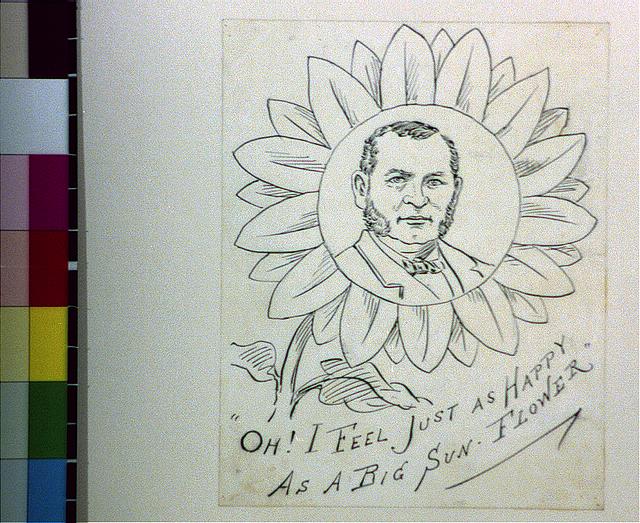 "OH! I FEEL JUST AS HAPPY
AS A BIG SUN-FLOWER."